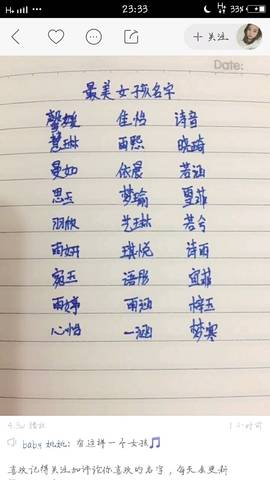 23:33
33%
+关注
Date:
最美女孩名字
馨媛 佳怡 诗音
慧琳 雨熙 晓琦
曼如 依晨 若涵
思玉 梦瑜 夏菲
羽欣 艺琳 若兮
雨妍 琪悦 诗雨
宛玉 语彤 宜菲
雨婷 雨涵 梓玉
心怡 一涵 梦寒
4.3w 播放
1小时前
baby姚姚:有这样一个女孩
喜欢记得关注加评论你喜欢的名字,每天在更新